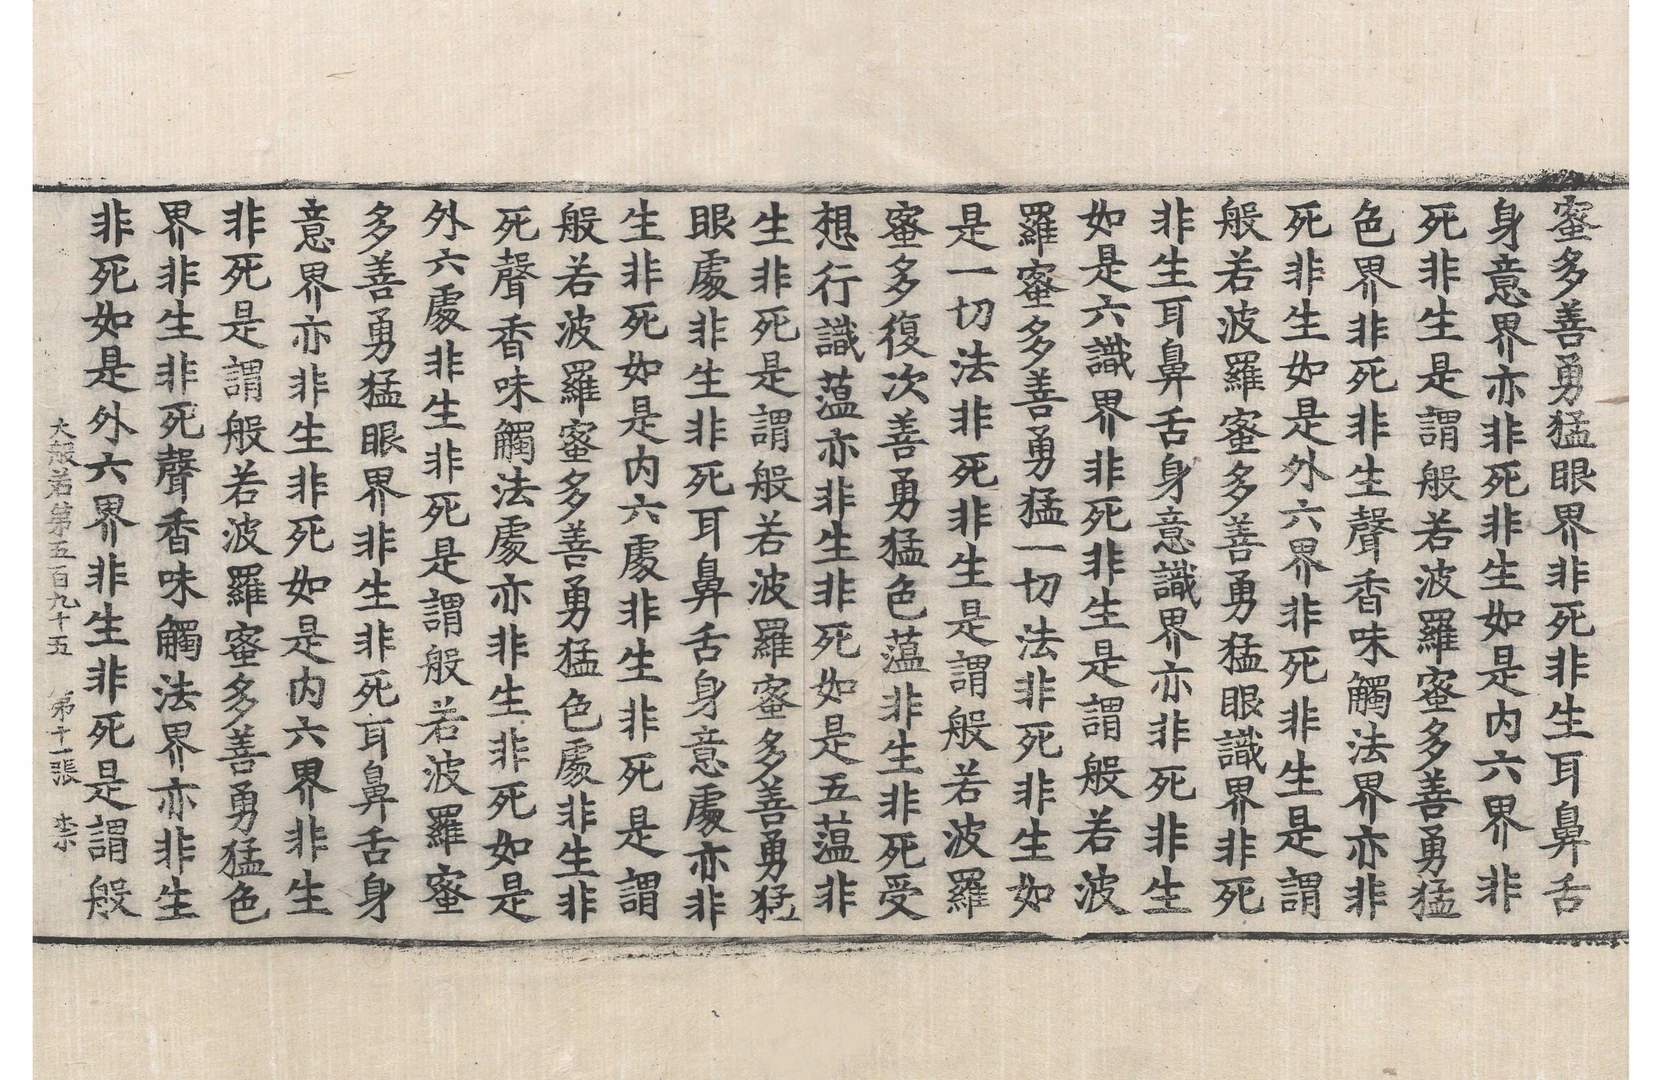 蜜多善勇猛眼界非死非生耳鼻舌
身意界亦非死非生如是内六界非
死非生是謂般若波羅蜜多善勇猛
色界非死非生聲香味觸法界亦非
死非生如是外六界非死非生是謂
般若波羅蜜多善勇猛眼識界非死
非生耳鼻舌身意識界亦非死非生
如是六識界非死非生是謂般若波
羅蜜多善勇猛一切法非死非生如
是一切法非死非生是謂般若波羅
蜜多復次善勇猛色蕰非生非死受
想行識蕰亦非生非死如是五蕰非
生非死是謂般若波羅蜜多善勇猛
眼處非生非死耳鼻舌身意處亦非
生非死如是内六處非生非死是謂
般若波羅蜜多善勇猛色處非生非
死聲香味觸法處亦非生非死如是
外六處非生非死是謂般若波羅蜜
多善勇猛眼界非生非死耳鼻舌身
意界亦非生非死如是内六界非生
非死是謂般若波羅蜜多善勇猛色
界非生非死聲香味觸法界亦非生
非死如是外六界非生非死是謂般
大般若第五百九十五 第十一張 李